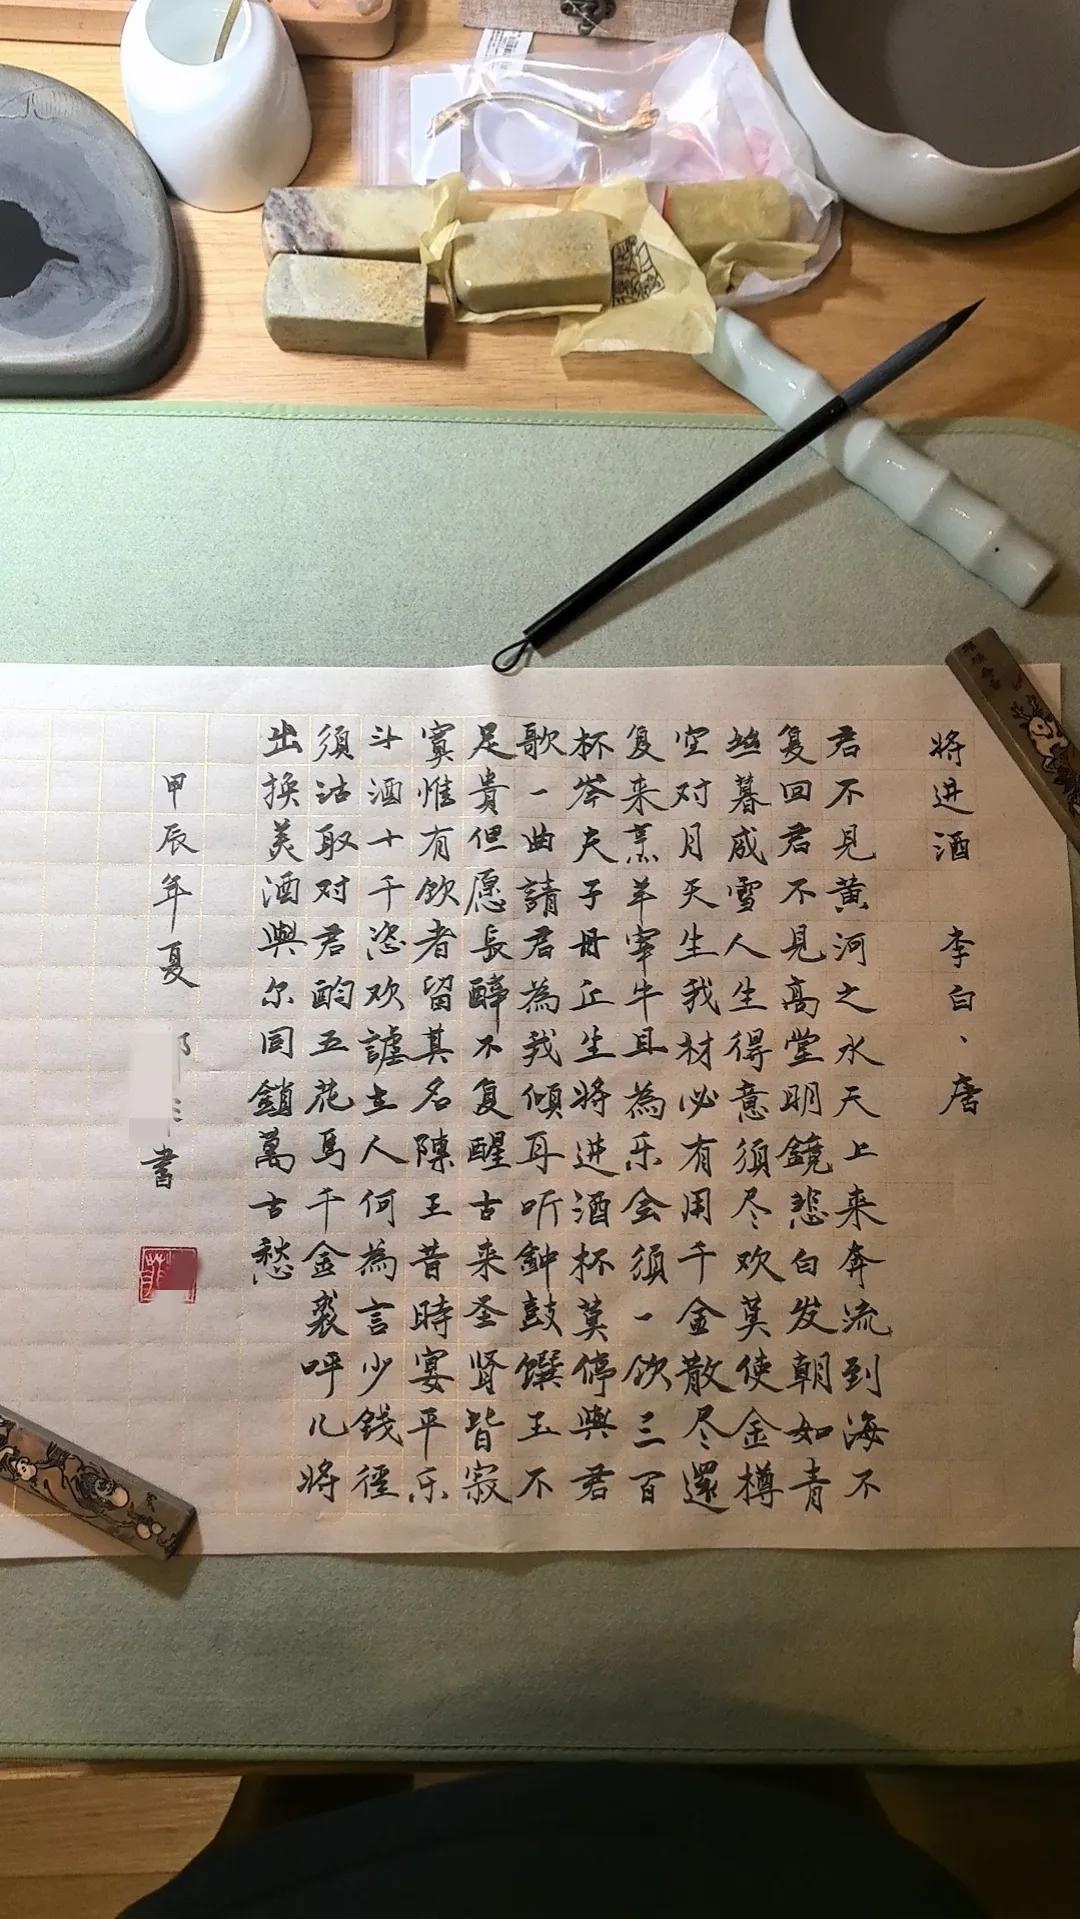 将进酒 李白、唐
君不見黄河之水天上来奔流到海不
复回君不見高堂明鏡悲白发朝如青
丝暮成雪人生得意須尽欢莫使金樽
空对月天生我材必有用千金散尽還
复来烹羊宰牛且為乐会須一饮三百
杯岑夫子丹丘生将进酒杯莫停與君
歌一曲請君為我傾耳听鈡鼓馔玉不
足貴但愿長醉不复醒古来圣贤皆寂
寞惟有飲者留其名陳王昔時宴平乐
斗酒十千恣欢謔主人何為言少錢徑
須沽取对君酌五花馬千金裘呼儿将
出换美酒與尔同銷萬古愁
甲辰年夏 書